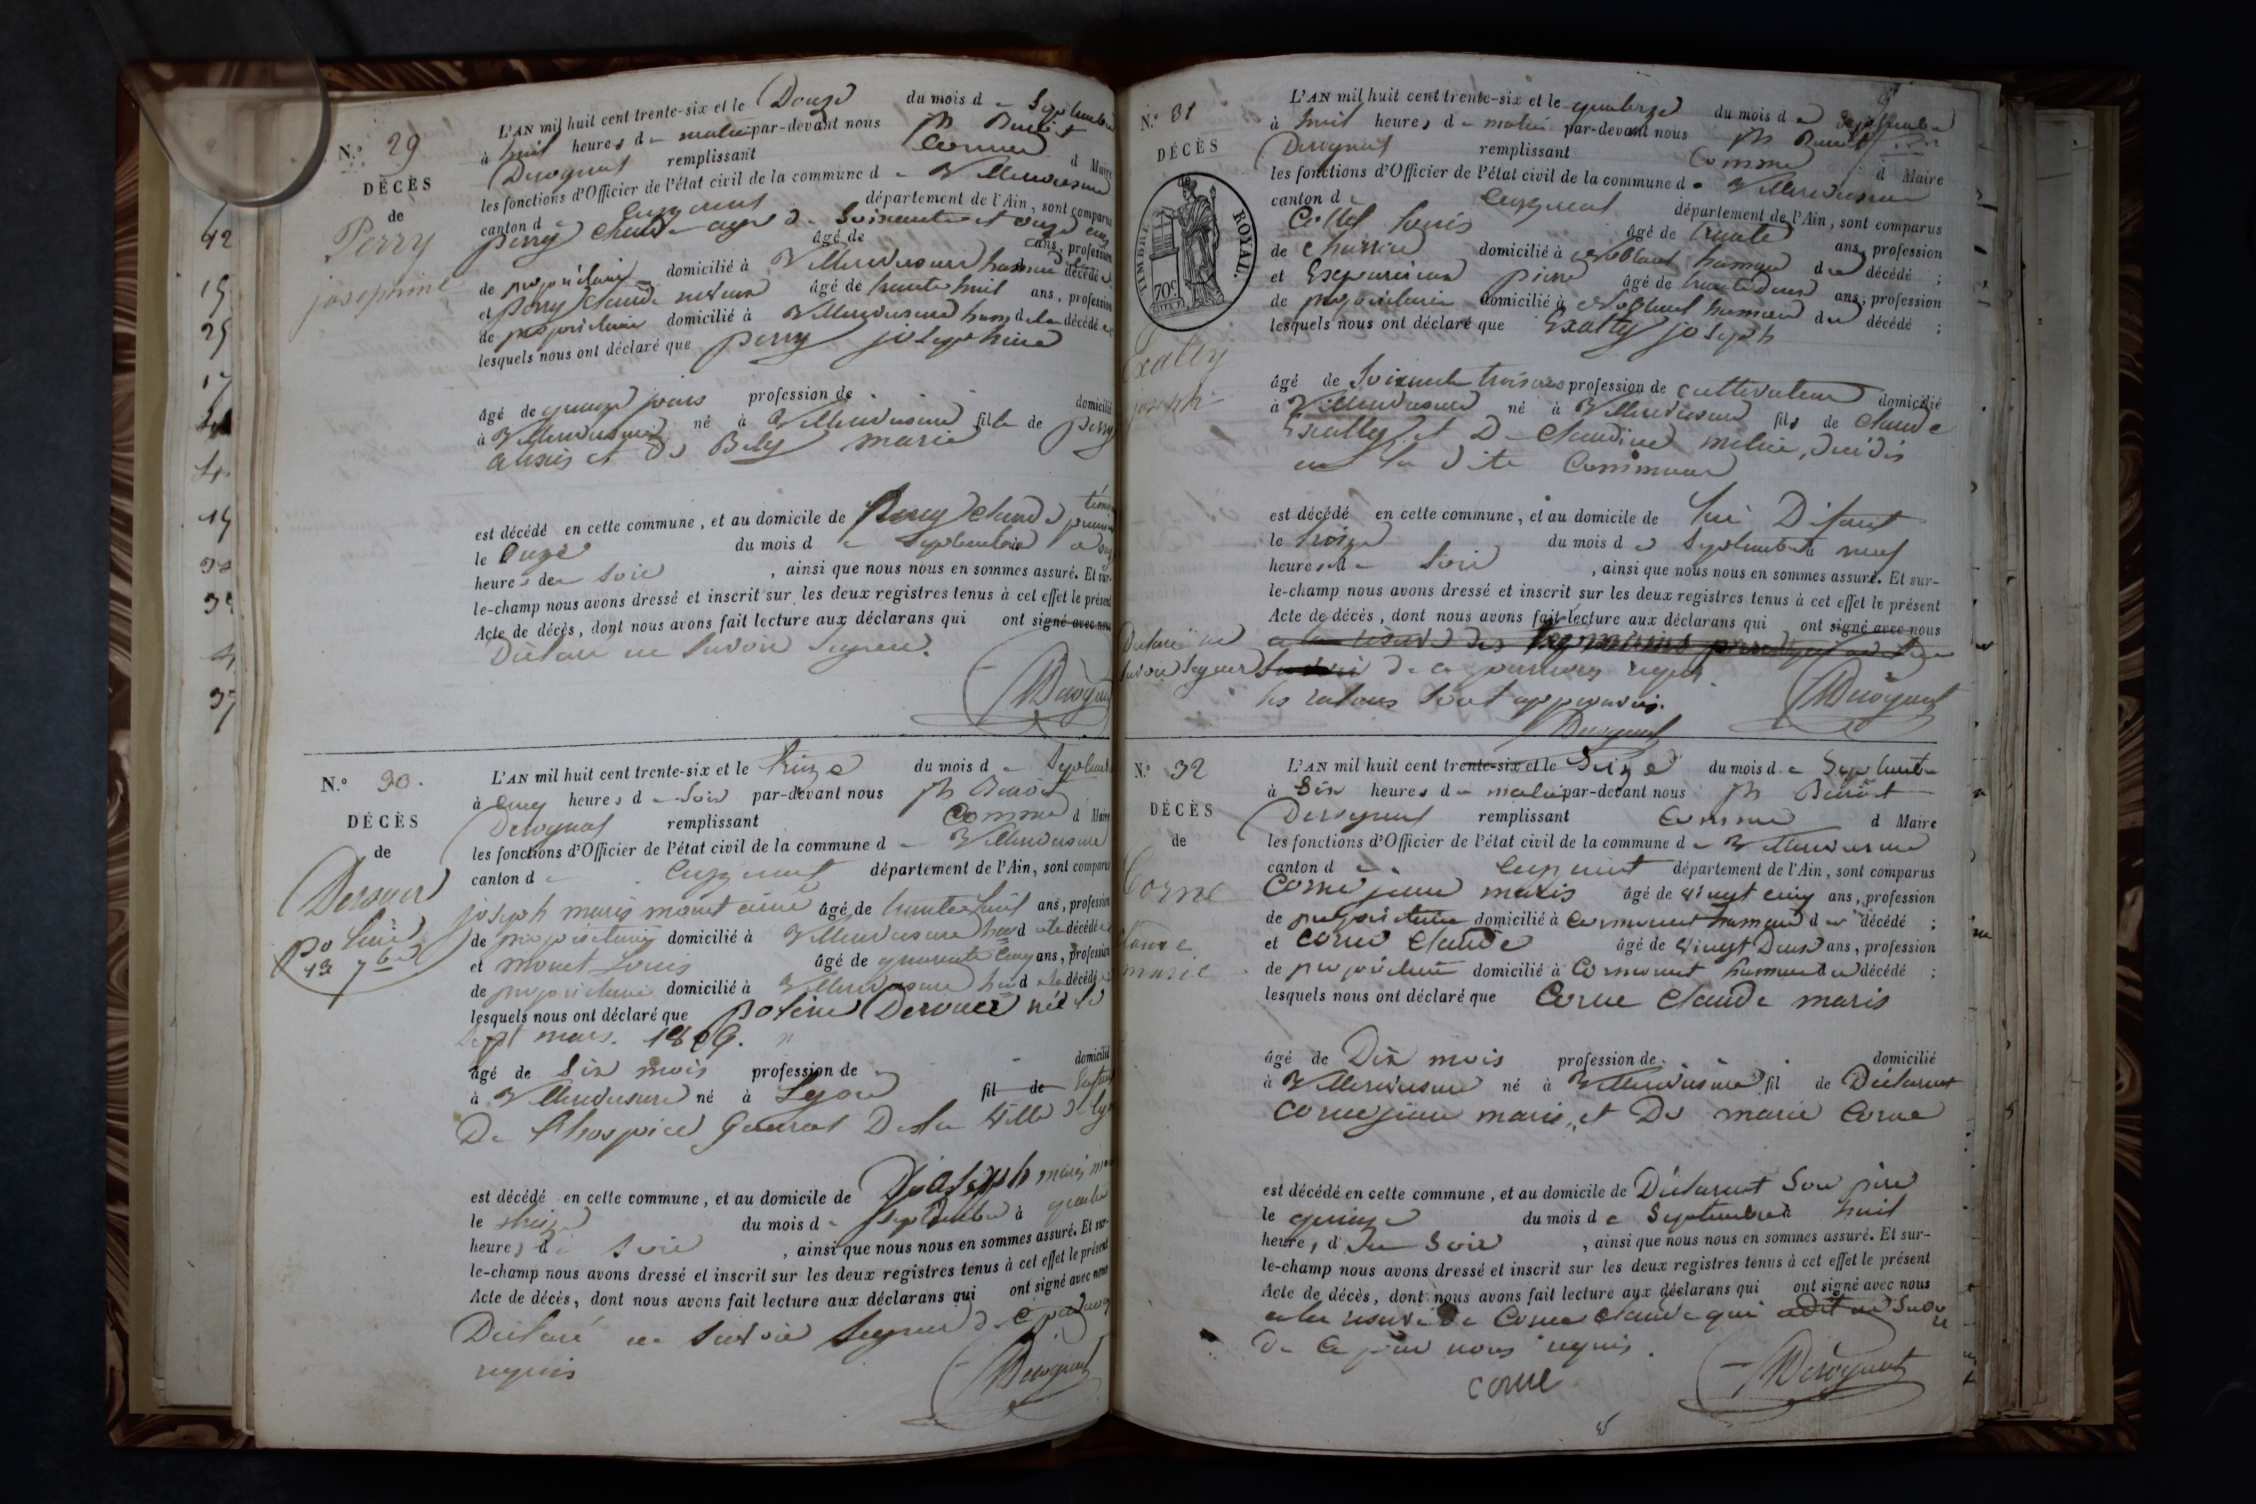 N.º 29
DÉCÈS
de
Perry
josephine
L'AN mil huit cent trente-six et le Douze du mois d e Septembre
à huit heures d u matin par-devant nous Mr Benoit
Derognat remplissant Comme d Maire
les fonctions d'Officier de l'état civil de la commune d e Villereversure
canton d e Ceyzeriat département de l'Ain, sont comparus
perry Claude agé de Soixante et onze ans
âgé de ans, profession
de propriétaire domicilié à Villereversure décédé
et perry Claude âgé de trente huit ans, profession
de propriétaire domicilié à Villereversure décédé
lesquels nous ont déclaré que perry josephine
âgé de quinze jours profession de domicilié
à Villereversure né à Villereversure fille de perry
alexis et De Bely marie
est décédé en cette commune, et au domicile de perry Claude
le onze du mois d e Septembre à
heures de soir, ainsi que nous nous en sommes assuré. Et sur-
le-champ nous avons dressé et inscrit sur les deux registres tenus à cet effet le présent
Acte de décès, dont nous avons fait lecture aux déclarans qui ont signé avec nous
Déclaré ne Savoir Signer.
Derognat
N.º 30.
DÉCÈS
de
Derouer
Po
13 7bre
L'AN mil huit cent trente-six et le treize du mois d e Septembre
à cinq heures d u Soir par-devant nous Mr Benoit
Derognat remplissant Comme d Maire
les fonctions d'Officier de l'état civil de la commune d e Villereversure
canton d e Ceyzeriat département de l'Ain, sont comparus
joseph marie monet âgé de trente huit ans, profession
de propriétaire domicilié à Villereversure décédé
et monet Louis âgé de quarante cinq ans, profession
de propriétaire domicilié à Villereversure décédé
lesquels nous ont déclaré que Derouer née le
Sept mars.
âgé de Six mois profession de domicilié
à Villereversure né à Lyon fil de
De l'hospice General De la Ville de Lyon
est décédé en cette commune, et au domicile de joseph marie
le treize du mois d e Septembre à quatre
heures d u Soir, ainsi que nous nous en sommes assuré. Et sur-
le-champ nous avons dressé et inscrit sur les deux registres tenus à cet effet le présent
Acte de décès, dont nous avons fait lecture aux déclarans qui ont signé avec nous
Déclaré ne Savoir Signer de ce
requis
Derognat
N.º 31
DÉCÈS
TIMBRE ROYAL.
70c
Exalty
joseph
L'AN mil huit cent trente-six et le quatorze du mois d e Septembre
à huit heures d u matin par-devant nous Mr Benoit
Derognat remplissant Comme d Maire
les fonctions d'Officier de l'état civil de la commune d e Villereversure
canton d e Ceyzeriat département de l'Ain, sont comparus
Collet Louis âgé de trente ans, profession
de charron domicilié à d u décédé;
et pierre âgé de trente deux ans, profession
de propriétaire domicilié à d u décédé;
lesquels nous ont déclaré que Exalty joseph
âgé de Soixante trois ans profession de cultivateur domicilié
à Villereversure né à Villereversure fils de Claude
Exalty et De Claudine, décédés
en la dite Commune
est décédé en cette commune, et au domicile de lui Défunt
le treize du mois d e Septembre à neuf
heures d u Soir, ainsi que nous nous en sommes assuré. Et sur-
le-champ nous avons dressé et inscrit sur les deux registres tenus à cet effet le présent
Acte de décès, dont nous avons fait lecture aux déclarans qui ont signé avec nous
Déclaré ne
Savoir Signer de ce requis
les ratures Sont approuvés.
Derognat
Derognat
N.º 32
DÉCÈS
de
Corne
Claude
marie
L'AN mil huit cent trente-six et le Seize du mois d e Septembre
à Six heures d u matin par-devant nous Mr Benoit
Derognat remplissant Comme d Maire
les fonctions d'Officier de l'état civil de la commune d e Villereversure
canton d e Ceyzeriat département de l'Ain, sont comparus
Corne jean marie âgé de vingt cinq ans, profession
de propriétaire domicilié à Cormorent hameau d u décédé;
et Corne Claude âgé de vingt Deux ans, profession
de propriétaire domicilié à Cormorent hameau d u décédé;
lesquels nous ont déclaré que Corne Claude marie
âgé de Dix mois profession de domicilié
à Villereversure né à Villereversure fil de Déclarant
Corne jean marie, et De marie Corne
est décédé en cette commune, et au domicile de Déclarant Son père
le quinze du mois d e Septembre à huit
heures d du Soir, ainsi que nous nous en sommes assuré. Et sur-
le-champ nous avons dressé et inscrit sur les deux registres tenus à cet effet le présent
Acte de décès, dont nous avons fait lecture aux déclarans qui ont signé avec nous
a la réserve de Corne Claude qui a dit ne Savoir
De Ce par nous requis.
Corne
Derognat